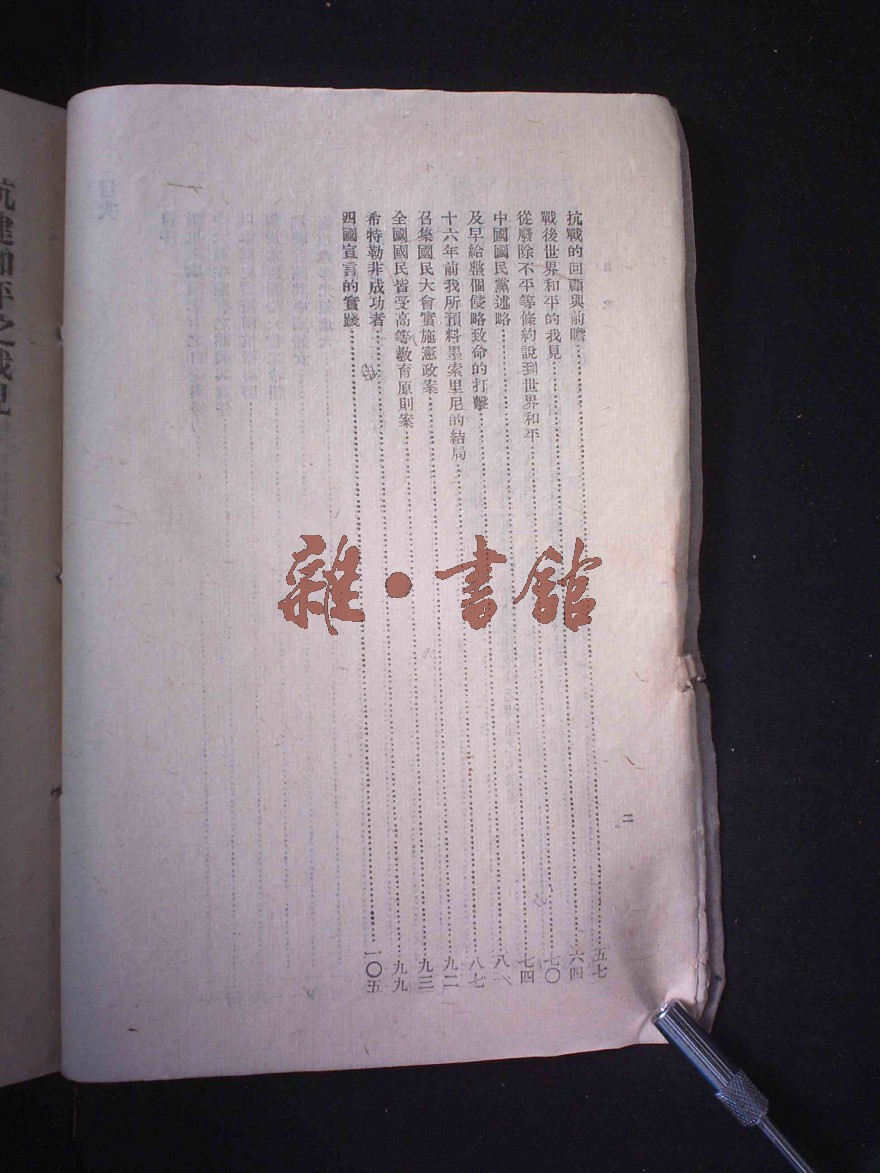 目次
二
抗戰的回顧與前瞻……五七
戰後世界和平的我見……六四
從廢除不平等條約說到世界和平……七〇
中國國民黨述略……七四
及早給整個侵略致命的打擊……八一
十六年前我所預料墨索里尼的結局……八七
召集國民大會實施憲政案……九二
全國國民省受高等教育原則案……九三
希特勒非成功者……九九
四國宣言的實踐……一〇五
抗建和平之我見
雜·書館